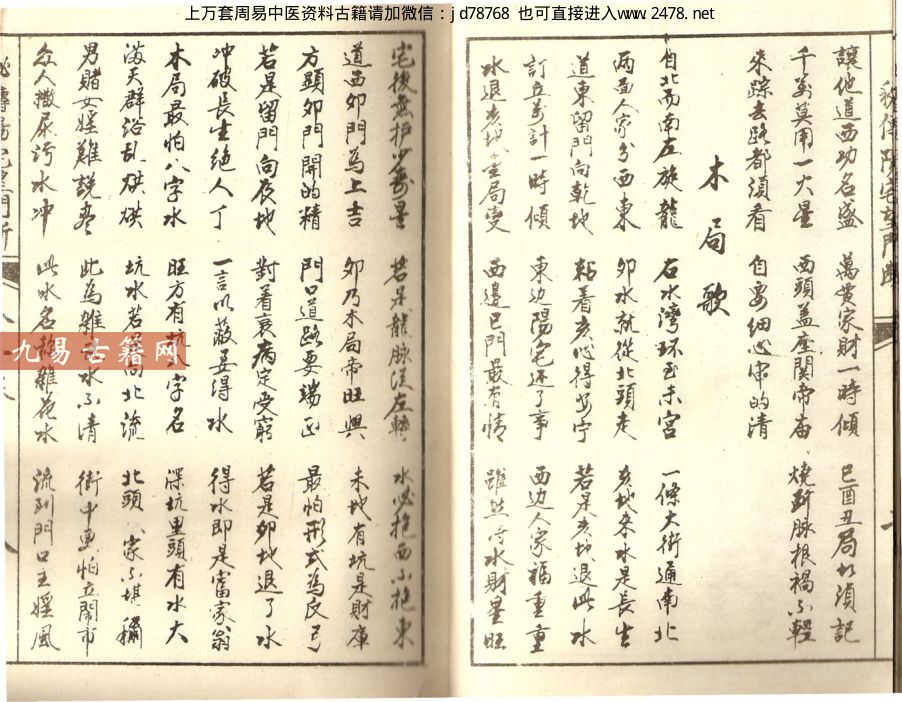 上万套周易中医资料古籍请加微信：jd78768 也可直接进入www.2478.net
讓他道西功名盛 萬貫家財一時傾 巳酉丑局切須記
千萬莫用一大星 西頭蓋座關帝庙 燒斷脉根禍不輕
來踪去路都須看 自要细心审的清
木局歌
自北而南左旋龍 右水灣环至未宮 一條大街通南北
两面人家分西東 卯水就從北頭走 亥地來水是長生
道東留門向乾地 粘着亥 得安宁 若是亥地退此水
訂立 計一時傾 東边陽宅还了事 西边人家福重重
水退亥地 局变 西邊巳門最有情 雖然 水財星旺
宅後無护少壽星 若是龍脉從左轉 水必抱西不抱東
道西卯門為上吉 卯乃木局帝旺興 未地有坑是財庫
方顕卯門開的精 門口道路要端正 最怕形式為反弓
若是留門向辰地 對着衰病定受窮 若是卯地退了水
冲破長生绝人丁 一言以蔽要得水 得水即是富家翁
木局最怕八字水 旺方有坑 字名 深坑里頭有水大
滿天群沿乱烘烘 坑水若 向北流 北頭人家不堪稱
男賭女婬難説尽 此為雜 水不清 街中更怕立閙市
众人撒尿污水冲 此水名称雜花水 流到門口主婬風
九易古籍网
秘傳陽宅坐門断